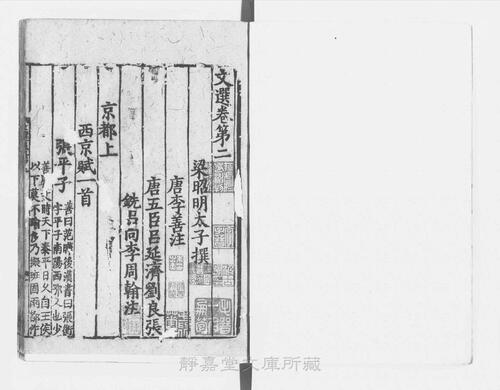 文選卷第二
梁昭明太子撰
唐李善注
唐五臣呂延濟劉良張
銑呂向李周翰注
京都上
西京賦一首
張平子
善曰范曄後漢書曰張衡
字平子南陽西鄂人也少
善文時天下泰平日久自王侯
以下莫不踰侈乃擬班固兩都作
靜嘉堂文庫所藏